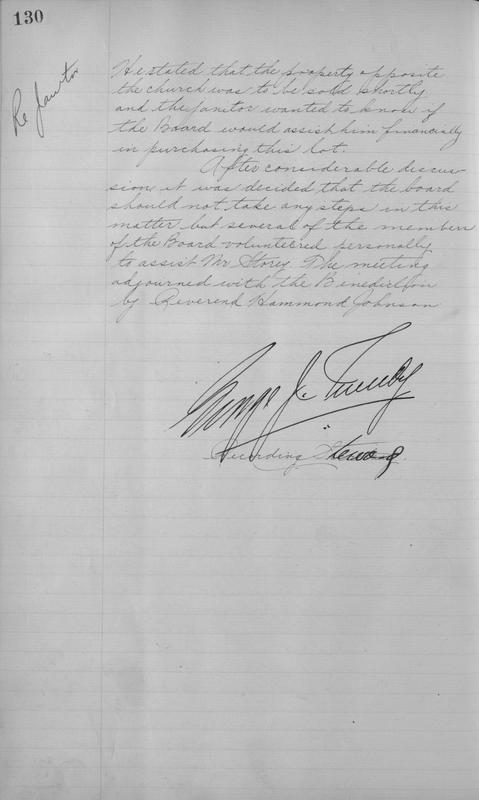 130
Re Janitor
He stated that the property opposite
the church was to be sold shortly
and the janitor wanted to know if
the Board would assist him financially
in purchasing this lot.
After considerable discus-
sion, it was decided that the board
should not take any steps in this
matter but several of the members
of the Board volunteered personally
to assist Mr Storey. The meeting
adjourned with the Benediction
by Reverend Hammond Johnson
J.
Recording Steward